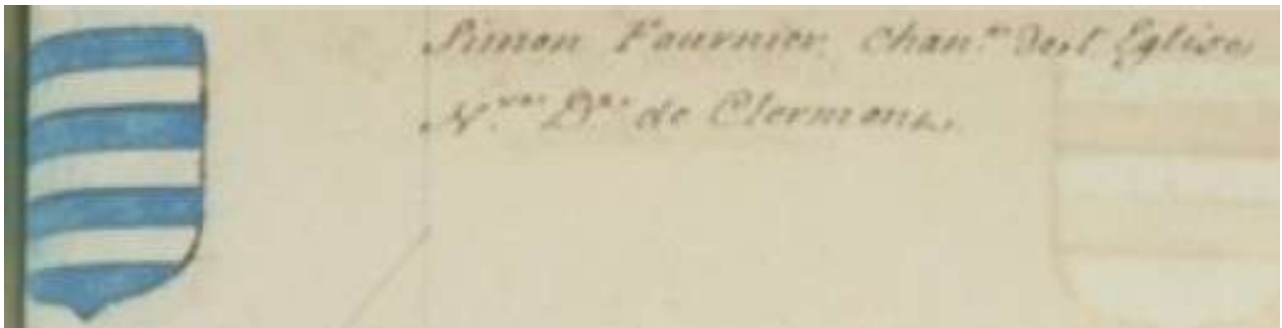 Simon Fournier, chan.ne de l'Eglise
N.tre D.e de Clermont.